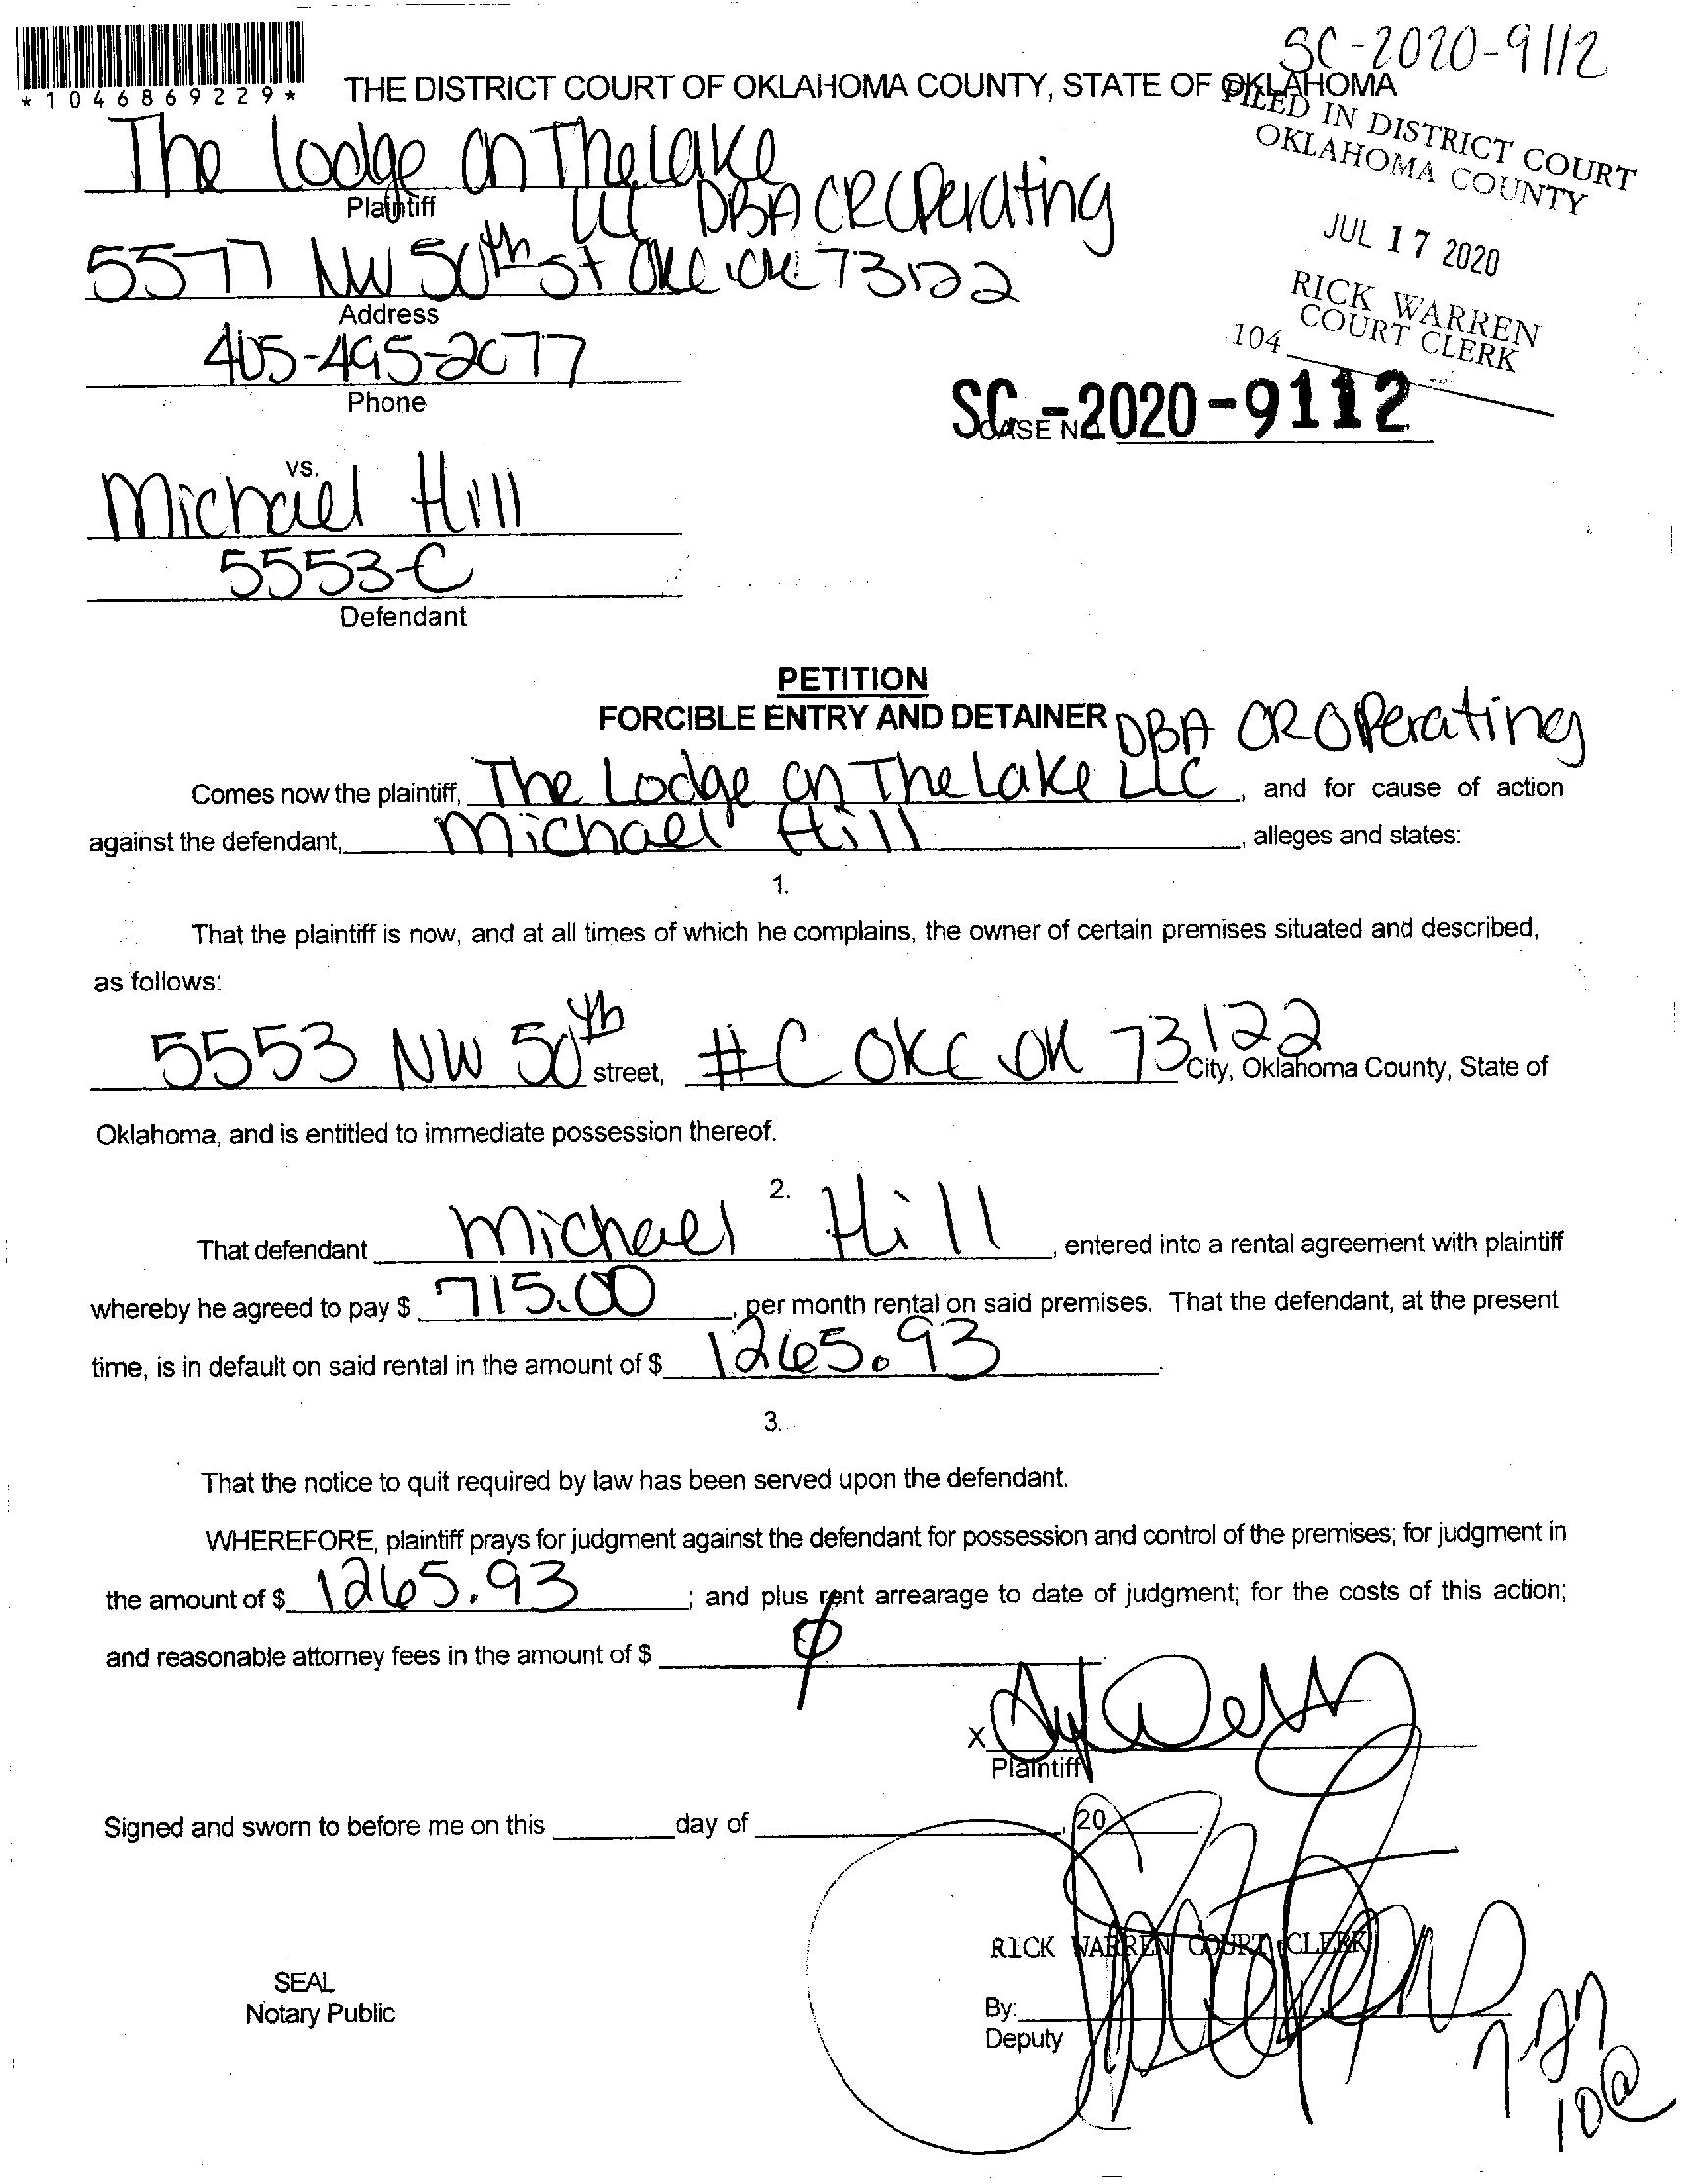 SC-2020-9112
*1046869229*
THE DISTRICT COURT OF OKLAHOMA COUNTY, STATE OF OKLAHOMA
FILED IN DISTRICT COURT
OKLAHOMA COUNTY
JUL 17 2020
RICK WARREN
COURT CLERK
104
The Lodge on The Lake
LLC DBA CROperating
Plaintiff
5577 NW 50th St OKC OK 73122
Address
405-495-2077
Phone
SC-2020-9112
CASE NO.
vs.
Michael Hill
5553-C
Defendant
PETITION
FORCIBLE ENTRY AND DETAINER
DBA CROperating
Comes now the plaintiff, The Lodge on The Lake LLC, and for cause of action
against the defendant, Michael Hill, alleges and states:
1.
That the plaintiff is now, and at all times of which he complains, the owner of certain premises situated and described,
as follows:
5553 NW 50th street, #C OKC OK 73122 City, Oklahoma County, State of
Oklahoma, and is entitled to immediate possession thereof.
2.
That defendant Michael Hill, entered into a rental agreement with plaintiff
whereby he agreed to pay $ 715.00, per month rental on said premises. That the defendant, at the present
time, is in default on said rental in the amount of $ 1265.93.
3.
That the notice to quit required by law has been served upon the defendant.
WHEREFORE, plaintiff prays for judgment against the defendant for possession and control of the premises; for judgment in
the amount of $ 1265.93; and plus rent arrearage to date of judgment; for the costs of this action;
and reasonable attorney fees in the amount of $ ϕ
X
Plaintiff
Signed and sworn to before me on this ____ day of ____, 20
RICK WARREN COURT CLERK
SEAL
Notary Public
By:
Deputy
7-27
10@